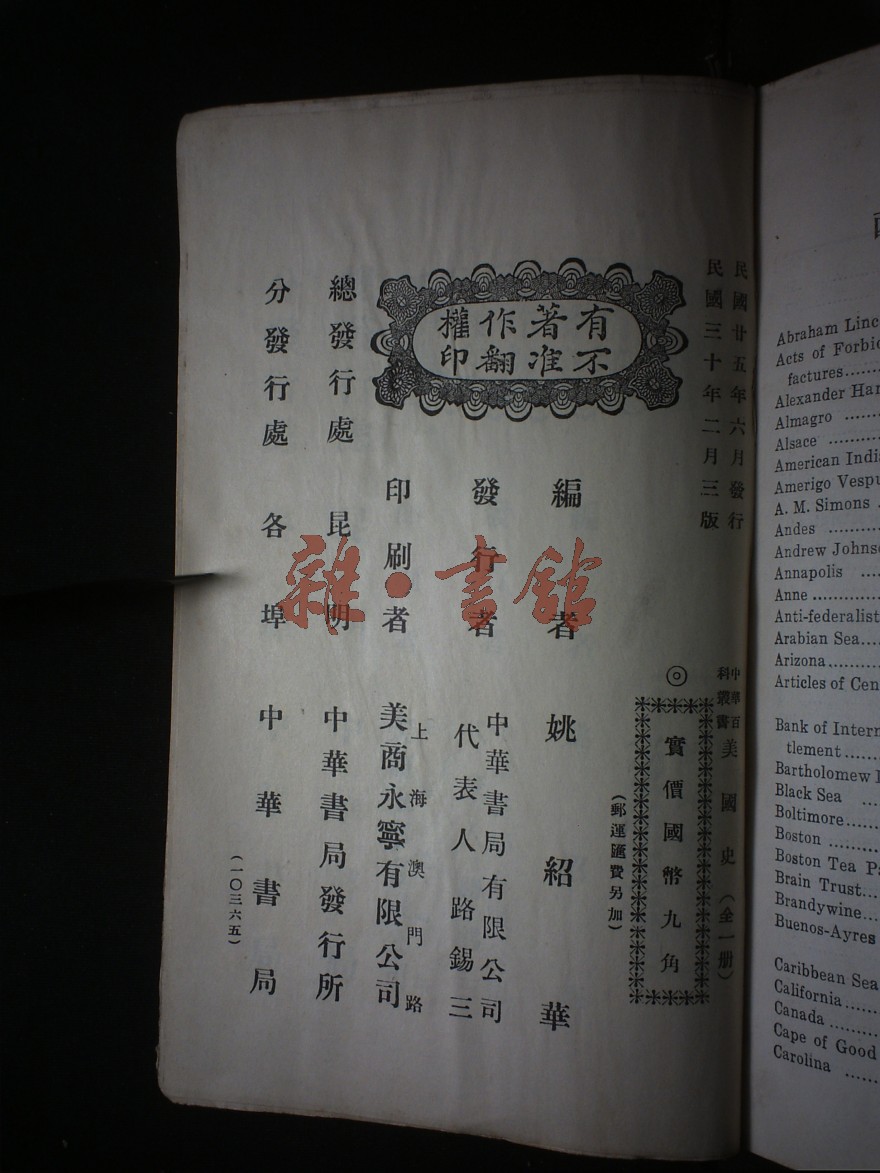 民國廿五年六月發行
民國三十年二月三版
有著作權
不准翻印
中華百科叢書
美國史（全一册）
◎
實價國幣九角
（郵運匯費另加）
編著者 姚紹華
發行者 中華書局有限公司
代表人 路錫三
印刷者 上海澳門路
美商永寧有限公司
總發行處 昆明 中華書局發行所
分發行處 各埠 中華書局
（一〇三六五）
雜·書館
Abraham Linc
Acts of Forbid
factures
Alexander Har
Almagro
Alsace
American India
Amerigo Vespu
A. M. Simons
Andes
Andrew Johnso
Annapolis
Anne
Anti-federalist
Arabian Sea
Arizona
Articles of Cen
Bank of Intern
tlement
Bartholomew
Black Sea
Boltimore
Boston
Boston Tea Pa
Brain Trust
Brandywine
Buenos-Ayres
Caribbean Sea
California
Canada
Cape of Good
Carolina